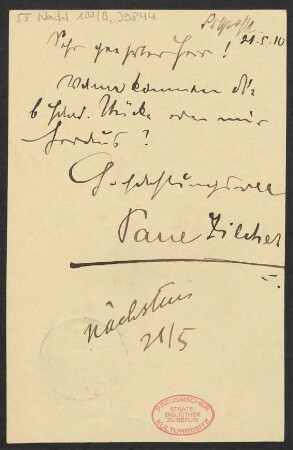 55 Nachl 100/B, 39844
21.5.10
Sehr geehrter Herr!
Wann kommen die
6 Stücke von mir
heraus?
Hochachtungsvoll
Paul Zilcher
nächstens
21/5
PREUSSISCHER
STAATS-
BIBLIOTHEK
ZU BERLIN
KULTURBESITZ